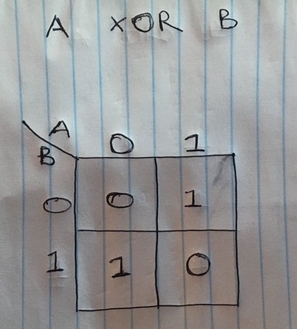 A XOR B
A 0 1
B
0 0 1
1 1 0